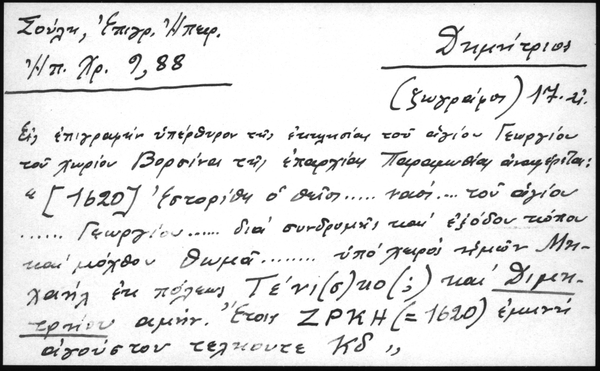 Σούλη, Ἐπιγρ. Ἠπειρ.
Δημήτριος
Ἠπ. Χρ. 9, 88
(ζωγράφος) 17. αἰ.
Εἰς ἐπιγραφήν ὑπέρθυρον τῆς ἐκκλησίας τοῦ ἁγίου Γεωργίου
τοῦ χωρίου Βορσίνας τῆς ἐπαρχίας Παραμυθίας ἀναφέρεται:
"[1620] Ἐστορίθη ὁ θεῖος..... ναός.... τοῦ ἁγίου
...... Γεωργίου...... διά συνδρομῆς καί ἐξόδου κόπου
καί μόχθου Θωμᾶ........ ὑπό χειρός ἡμῶν Μη-
χαήλ ἐκ πόλεως Τένι(σ)κο(;) καί Διμη-
τρηίου ἀμήν. Ἔτοις ΖΡΚΗ (= 1620) ἐμηνή
αἰγούστου τελκουτε Κδ "